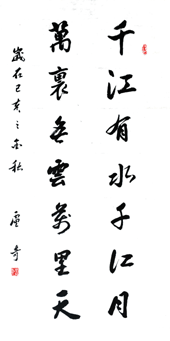 千江有水千江月
萬裏無雲萬里天
歲在己亥之金秋